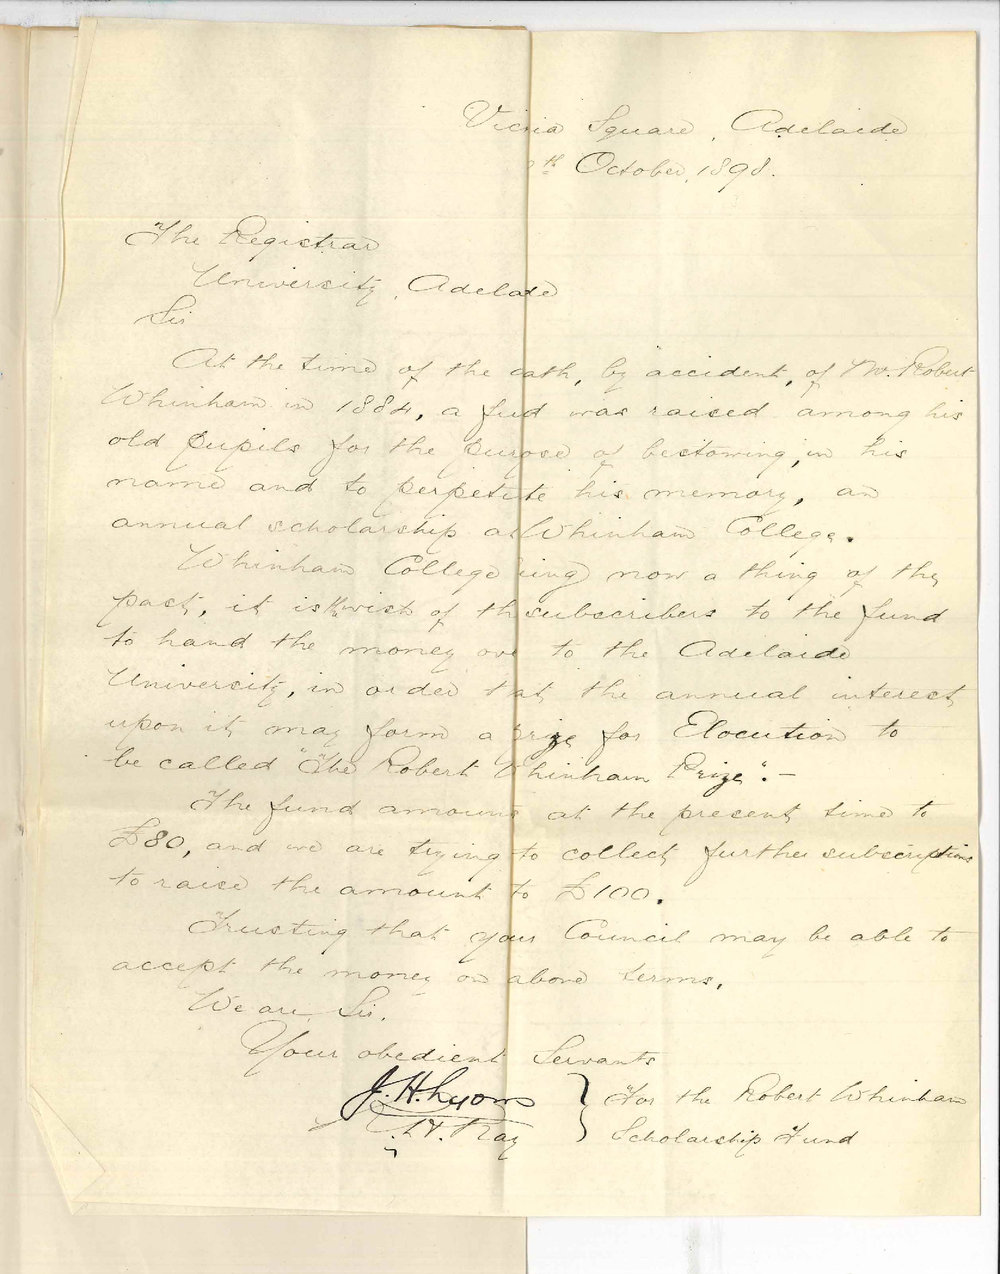 Vicria Square, Adelaide
th October, 1898.
The Registrar
University, Adelaide
Sir
At the time of the eath, by accident, of Mr. Robert
Whinham in 1884, a fud was raised among his
old pupils for the purose of bestowing, in his
name and to perpetute his memory, an
annual scholarship at Whinham College.
Whinham College ing now a thing of the
past, it is the wish of th subscribers to the fund
to hand the money ove to the Adelaide
University, in order that the annual interest
upon it may form a prize for Elocution to
be called "The Robert Whinham Prize". —
The fund amouns at the present time to
£80, and we are trying to collect further subscriptions
to raise the amount to £100.
Trusting that your Council may be able to
accept the money on above terms,
We are, Sir,
Your obedient Servants
J. H. Lyons } For the Robert Whinham
Ray } Scholarship Fund